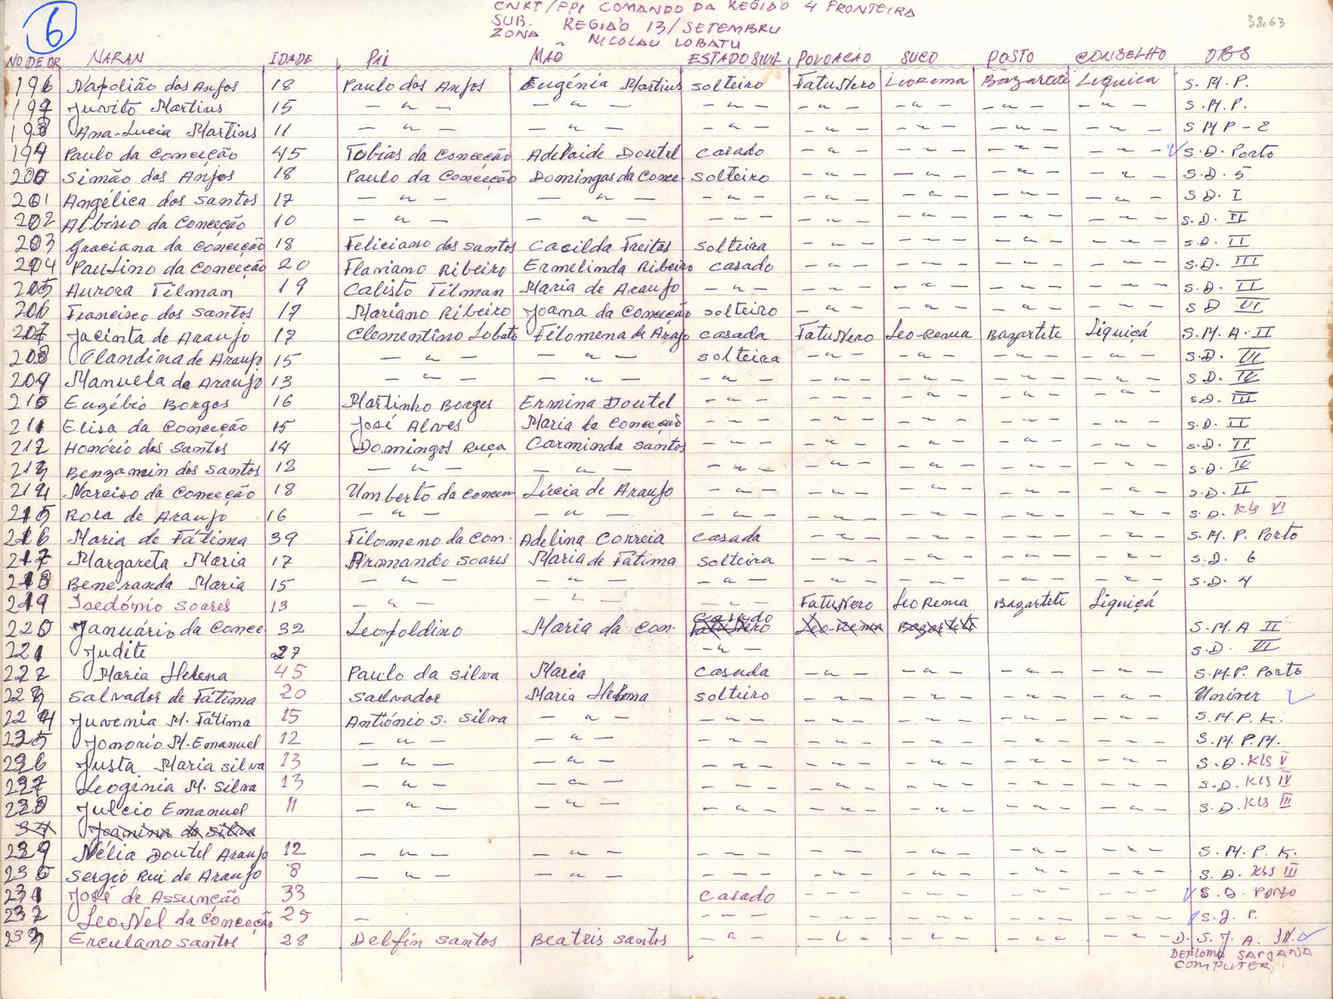 CNRT/FPI COMANDO DA REGIÃO 4 FRONTEIRA
SUB. REGIÃO 13/SETEMBRU
ZONA NICOLAU LOBATU
6
38.63
NO DE OR NARAN IDADE Pai MÃO ESTADO SIVIL POVOACAO SUCO POSTO CONSELHO OBS
196 Napolião dos Anjos 18 Paulo dos Anjos Eugénia Martins solteiro FatuNero LeoRema Bazartete Liquica S.M.P.
197 Juvito Martins 15 — " — — " — — " — — " — — " — — " — — " — S.M.P.
198 Ana-Lucia Martins 11 — " — — " — — " — — " — — " — — " — — " — S M P - 2
199 Paulo da Conceição 45 Tobias da Conceção Adelaide Doutel casado — " — — " — — " — — " — S.D. Porto
200 Simão dos Anjos 18 Paulo da Conceição Domingas da Conce. solteiro — " — — " — — " — — " — S.D. 5
201 Angélica dos Santos 17 — " — — " — — " — — " — — " — — " — S.D. I
202 Albino da Conceção 10 — " — — " — — " — — " — — " — — " — S.D. II
203 Graciana da Conceção 18 Feliciano dos Santos Cacilda Freitas solteira — " — — " — — " — — " — S.D. II
204 Paulino da Conceção 20 Flaviano Ribeiro Ermelinda Ribeiro casado — " — — " — — " — — " — S.D. III
205 Aurora Tilman 19 Calisto Tilman Maria de Araujo — " — — " — — " — — " — — " — S.D. II
206 Francisco dos Santos 17 Mariano Ribeiro Joana da Conceção solteiro — " — — " — — " — — " — S D VI
207 Jacinta de Araujo 17 Clementino Lobato Filomena de Arajo casada FatuNero Leo-Rema Bazartete Liquiçá S.M.A-II
208 Clandina de Araujo 15 — " — — " — solteira — " — — " — — " — — " — S.D. VI
209 Manuela de Araujo 13 — " — — " — — " — — " — — " — — " — — " — S.D. IV
210 Eugébio Borges 16 Martinho Borges Ermina Doutel — " — — " — — " — — " — — " — S.D. III
211 Elisa da Conceição 15 José Alves Maria da Conceção — " — — " — — " — — " — — " — S.D. II
212 Honório dos Santos 14 Domingos Ruça Carminda Santos — " — — " — — " — — " — — " — S.D. II
213 Benzamin dos Santos 12 — " — — " — — " — — " — — " — — " — — " — S.D. IV
214 Narciso da Conceção 18 Umberto da Concen Lúcia de Araujo — " — — " — — " — — " — — " — S.D. II
215 Rosa de Araujo 16 — " — — " — — " — — " — — " — — " — — " — S.D. Kls VI
216 Maria de Fátima 39 Filomeno da Con. Adelina Correia casada — " — — " — — " — — " — S.M.P. Porto
217 Margareta Maria 17 Armando Soares Maria de Fátima Solteira — " — — " — — " — — " — S.D. 6
218 Beneranda Maria 15 — " — — " — — " — — " — — " — — " — — " — S.D. 4
219 Isedónio Soares 13 — " — — " — — " — FatuNero LeoRema Bazartete Liquiçá
220 Januário da Conce. 32 Leopoldino Maria da Con. Casado Leo-Rema Bazartete S.M.A II
221 Judite 27 — " — S.D. VI
222 Maria Helena 45 Paulo da Silva Maria casada — " — — " — — " — — " — S.M.P. Porto
223 Salvador de Fátima 20 Salvador Maria Helena solteiro — " — — " — — " — — " —
224 Juvenia M. Fátima 15 António S. Silva — " — — " — — " — — " — — " — — " — S.M.P.K.
225 Jonorio M. Emanuel 12 — " — — " — — " — — " — — " — — " — — " — S.M.P.M.
226 Justa Maria Silva 13 — " — — " — — " — — " — — " — — " — — " — S.D. Kls V
227 Leoginia M. Silva 13 — " — — " — — " — — " — — " — — " — — " — S.D. Kls IV
228 Julcio Emanuel 11 — " — — " — — " — — " — — " — — " — — " — S.D. Kls III
229 Nélia Doutel Araujo 12 — " — — " — — " — — " — — " — — " — — " — S.M.P.K.
230 Sergio Rui de Araujo 8 — " — — " — — " — — " — — " — — " — — " — S.D. Kls III
231 José de Assunção 33 Casado — " — — " — — " — — " — S.D. Porto
232 LeoNel da Conceção 25 — — " — — " — — " — — " — — " — S.J. P.
233 Erculano Santos 28 Delfin Santos Beatris Santos — " — — " — — " — — " — — " — D.S.J.A.
DEPLOMA SARJANA
COMPUTER